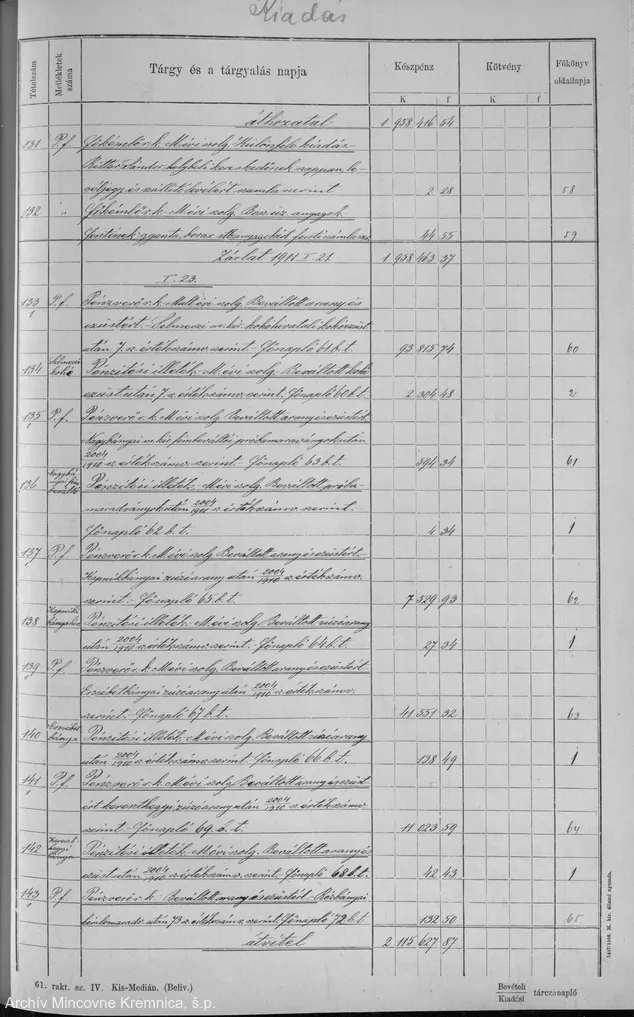 Kiadás
Tételszám
Mellékletek száma
Tárgy és a tárgyalás napja
Készpénz
Kötvény
Főkönyv oldallapja
K f K f
áthozatal 1 958 416 54
131 P.f. Főkémlő r.k. Mévi szolg. Különféle kiadás
Ritter Sándor helybeli kereskedőnek szappan, le-
véljegy és szállítólevélért számla szerint 2 28 58
132 " Főkémlő r.k. Mévi szolg. Besz. üz. anyagok.
44 55 59
Zárlat 1911 I. 21. 1 958 463 37
I. 23.
133 P.f. Pénzverő r.k. Mult évi szolg. Beváltott arany és
ezüstért. Selmeczi m. kir. kohóhivatali kohóezüst
után 7. sz. értékszámv. szerint. Főnapló 61 b.t. 93 815 74 60
134 Selmeczi kohó Pénzítési illeték. Mévi szolg. Beváltott koh.
ezüst után 7. sz. értékszámv. szerint. Főnapló 60 b.t. 2 304 48 2
135 P.f. Pénzverő r.k. Mévi szolg. Beváltott arany és ezüstért
Nagybányai m. kir. fémbeváltói próbamaradványok után
2004/1910 sz. értékszámv. szerint. Főnapló 63 b.t. 594 34 61
136 Pénzítési illeték. Mévi szolg. Beváltott próba-
maradványok után 2004/1910 sz. értékszámv. szerint.
Főnapló 62 b.t. 4 34 1
137 P.f. Pénzverő r.k. Mévi szolg. Beváltott arany és ezüstért.
Kapnikbányai zúzóarany után 2004/1910 sz. értékszámv.
szerint. Főnapló 65 b.t. 7 529 93 62
138 Kapnikbánya Pénzítési illeték. Mévi szolg. Beváltott zúzóarany
után 2004/1910 sz. értékszámv. szerint. Főnapló 64 b.t. 27 34 1
139 P.f. Pénzverő r.k. Mévi szolg. Beváltott arany és ezüstért
Erzsébetbányai zúzóarany után 2004/1910 sz. értékszámv.
szerint. Főnapló 67 b.t. 41 551 32 63
140 Erzsébetbánya Pénzítési illeték. Mévi szolg. Beváltott zúzóarany
után 2004/1910 sz. értékszámv. szerint. Főnapló 66 b.t. 138 49 1
141 P.f. Pénzverő r.k. Mévi szolg. Beváltott arany és ezüst
ért kereszthegyi zúzóarany után 2004/1910 sz. értékszámv.
szerint. Főnapló 69 b.t. 11 023 59 64
142 Kereszthegyi bánya Pénzítési illeték. Mévi szolg. Beváltott arany és
ezüst után 2004/1910 sz. értékszámv. szerint. Főnapló 68 b.t. 42 43 1
143 P.f. Pénzverő r.k. Beváltott arany és ezüstért. Rézbányai
után 73 sz. értékszámv. szerint. Főnapló 72 b.t. 132 50 65
átvitel 2 115 627 87
61. rakt. sz. IV. Kis-Medián. (Beliv.)
Bevételi
Kiadási tárczanapló
Archív Mincovne Kremnica, š.p.